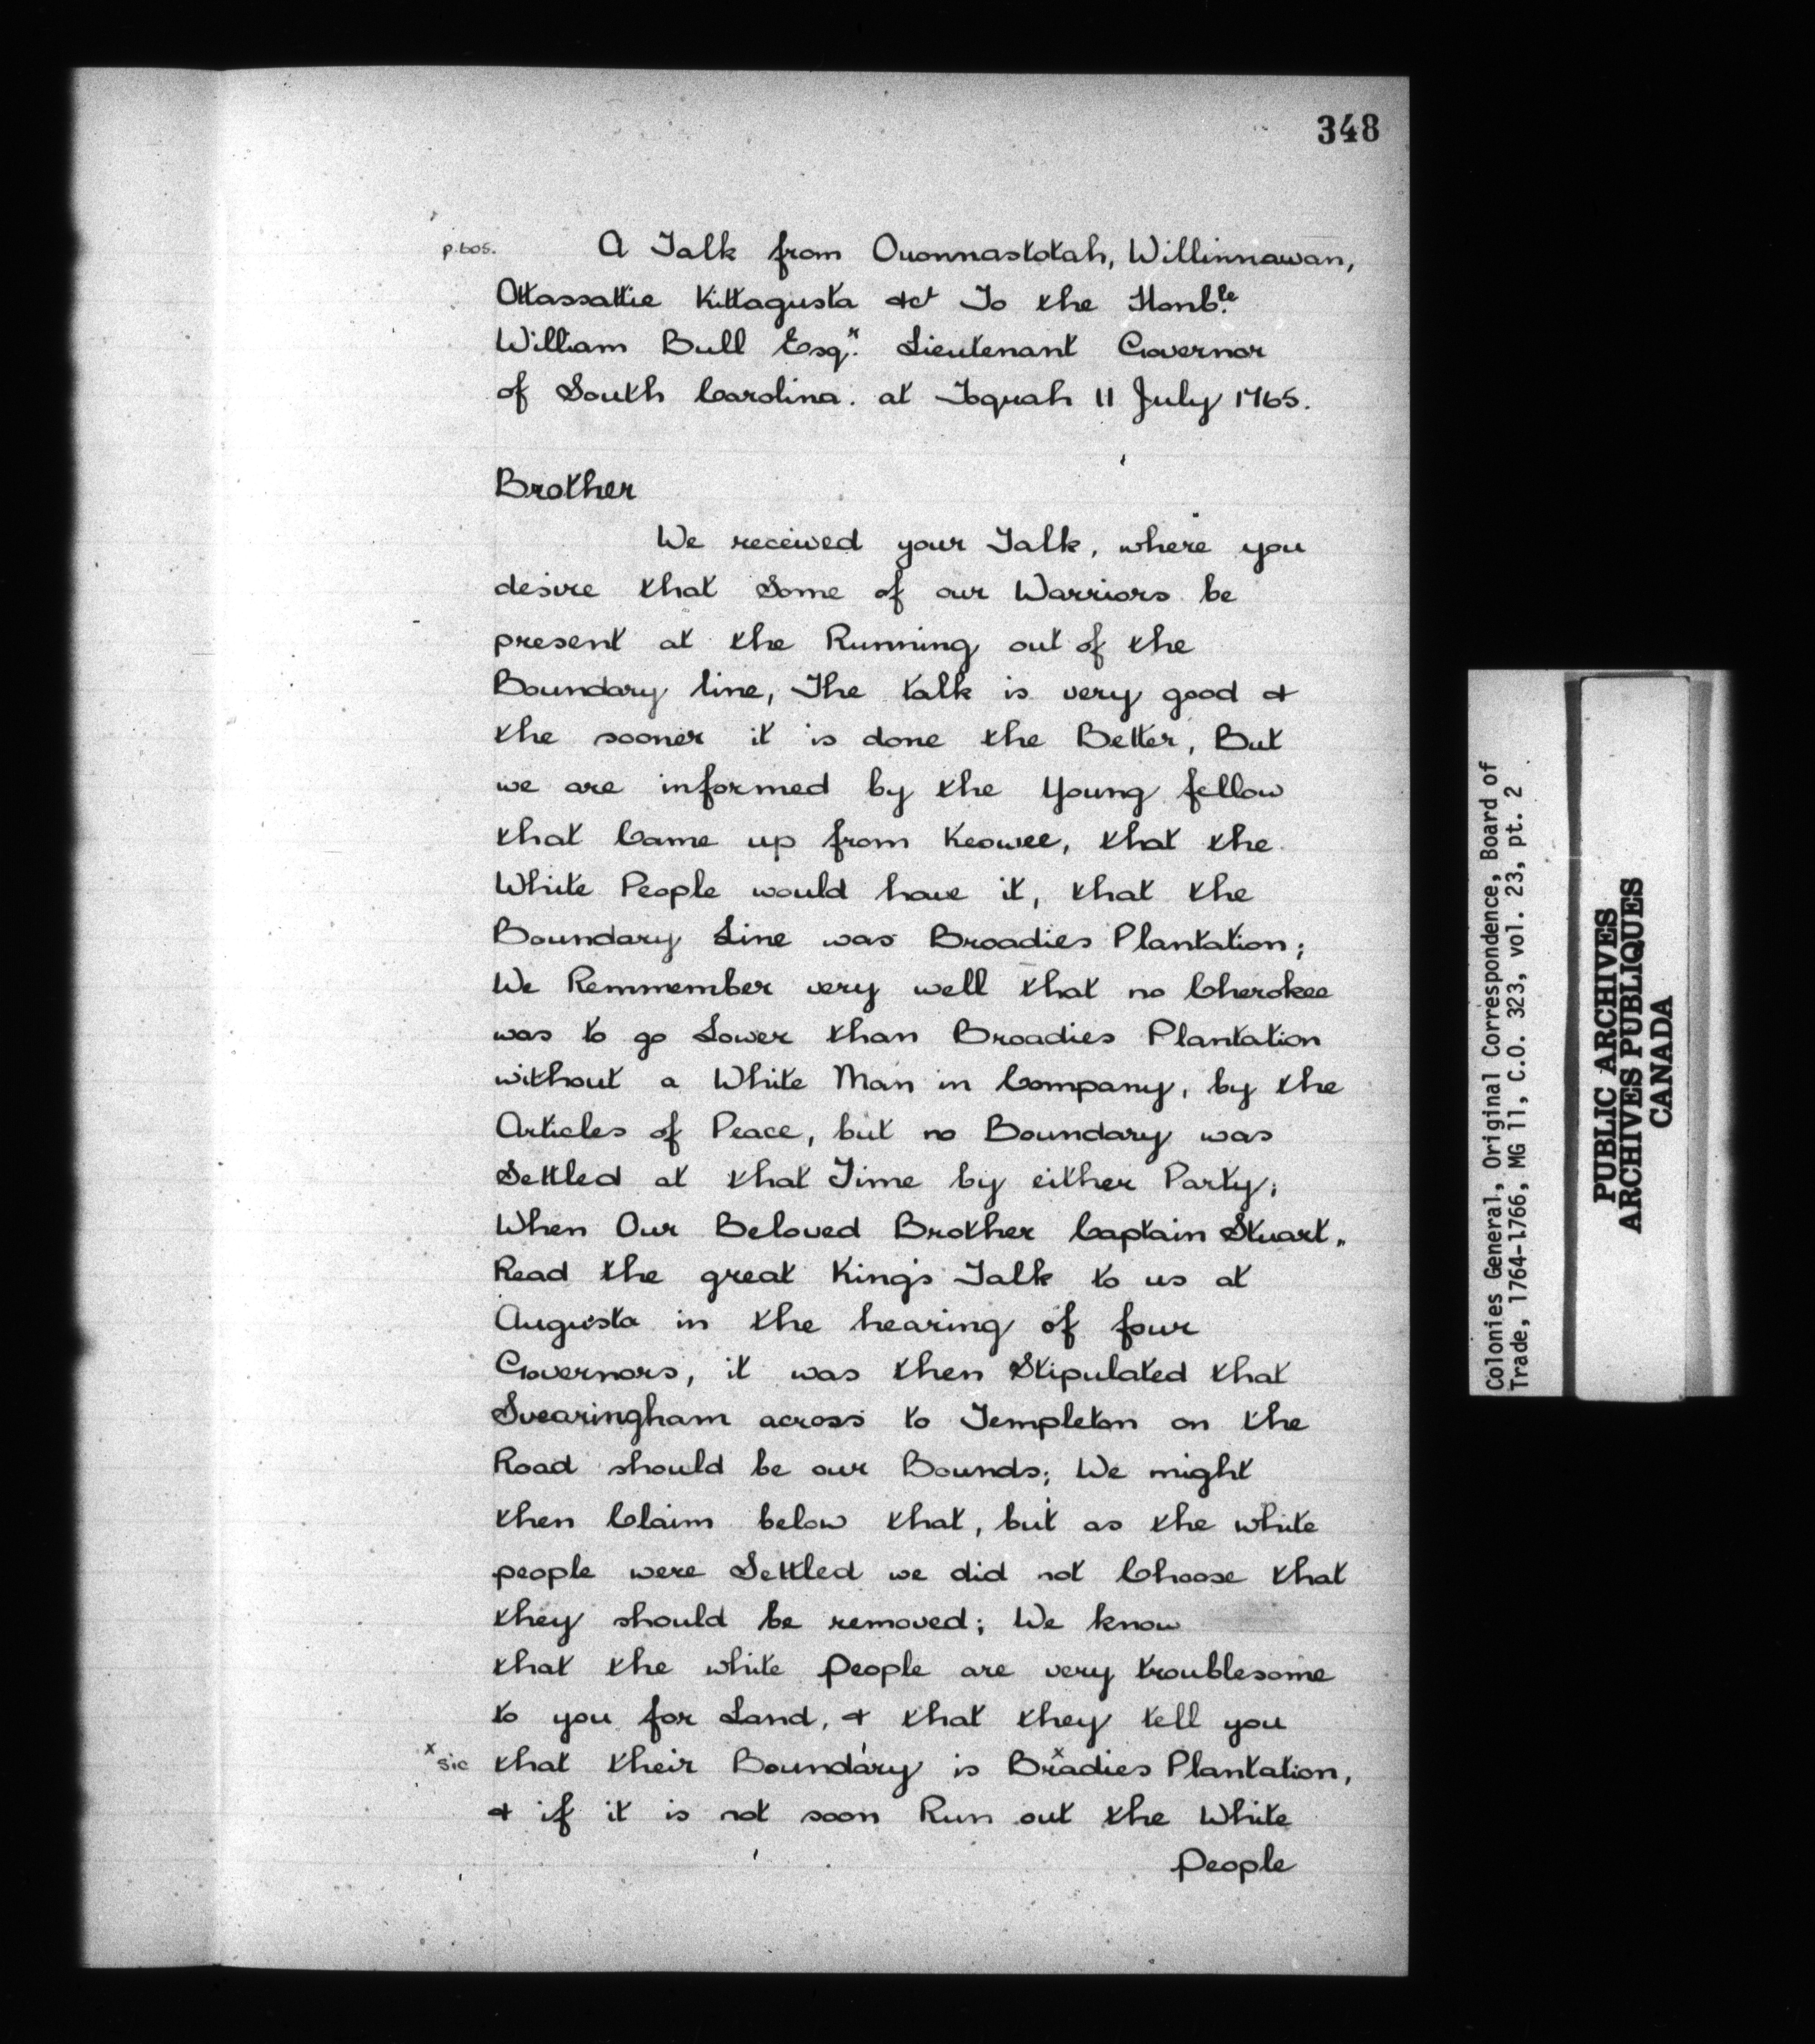 348
p.605.
A Talk from Ouonnastotah, Willinnawan,
Ottassattie Kittagusta &ct To the Honble.
William Bull Esqr. Lieutenant Governor
of South Carolina. at Toquah 11 July 1765.
Brother
We received your Talk, where you
desire that Some of our Warriors be
present at the Running out of the
Boundary line, The talk is very good &
the sooner it is done the Better, But
we are informed by the Young fellow
that Came up from Keowee, that the
White People would have it, that the
Boundary Line was Broadies Plantation;
We Remmember very well that no Cherokee
was to go Lower than Broadies Plantation
without a White Man in Company, by the
Articles of Peace, but no Boundary was
Settled at that Time by either Party;
When Our Beloved Brother Captain Stuart,,
Read the great King's Talk to us at
Augusta in the hearing of four
Governors, it was then Stipulated that
Svearingham across to Templeton on the
Road should be our Bounds; We might
then Claim below that, but as the white
people were Settled we did not Choose that
they should be removed; We know
that the white People are very troublesome
to you for Land, & that they tell you
x sic that their Boundary is Bradies x Plantation,
& if it is not soon Run out the White
People
Colonies General, Original Correspondence, Board of
Trade, 1764-1766, MG 11, C.O. 323, vol. 23, pt. 2
PUBLIC ARCHIVES
ARCHIVES PUBLIQUES
CANADA